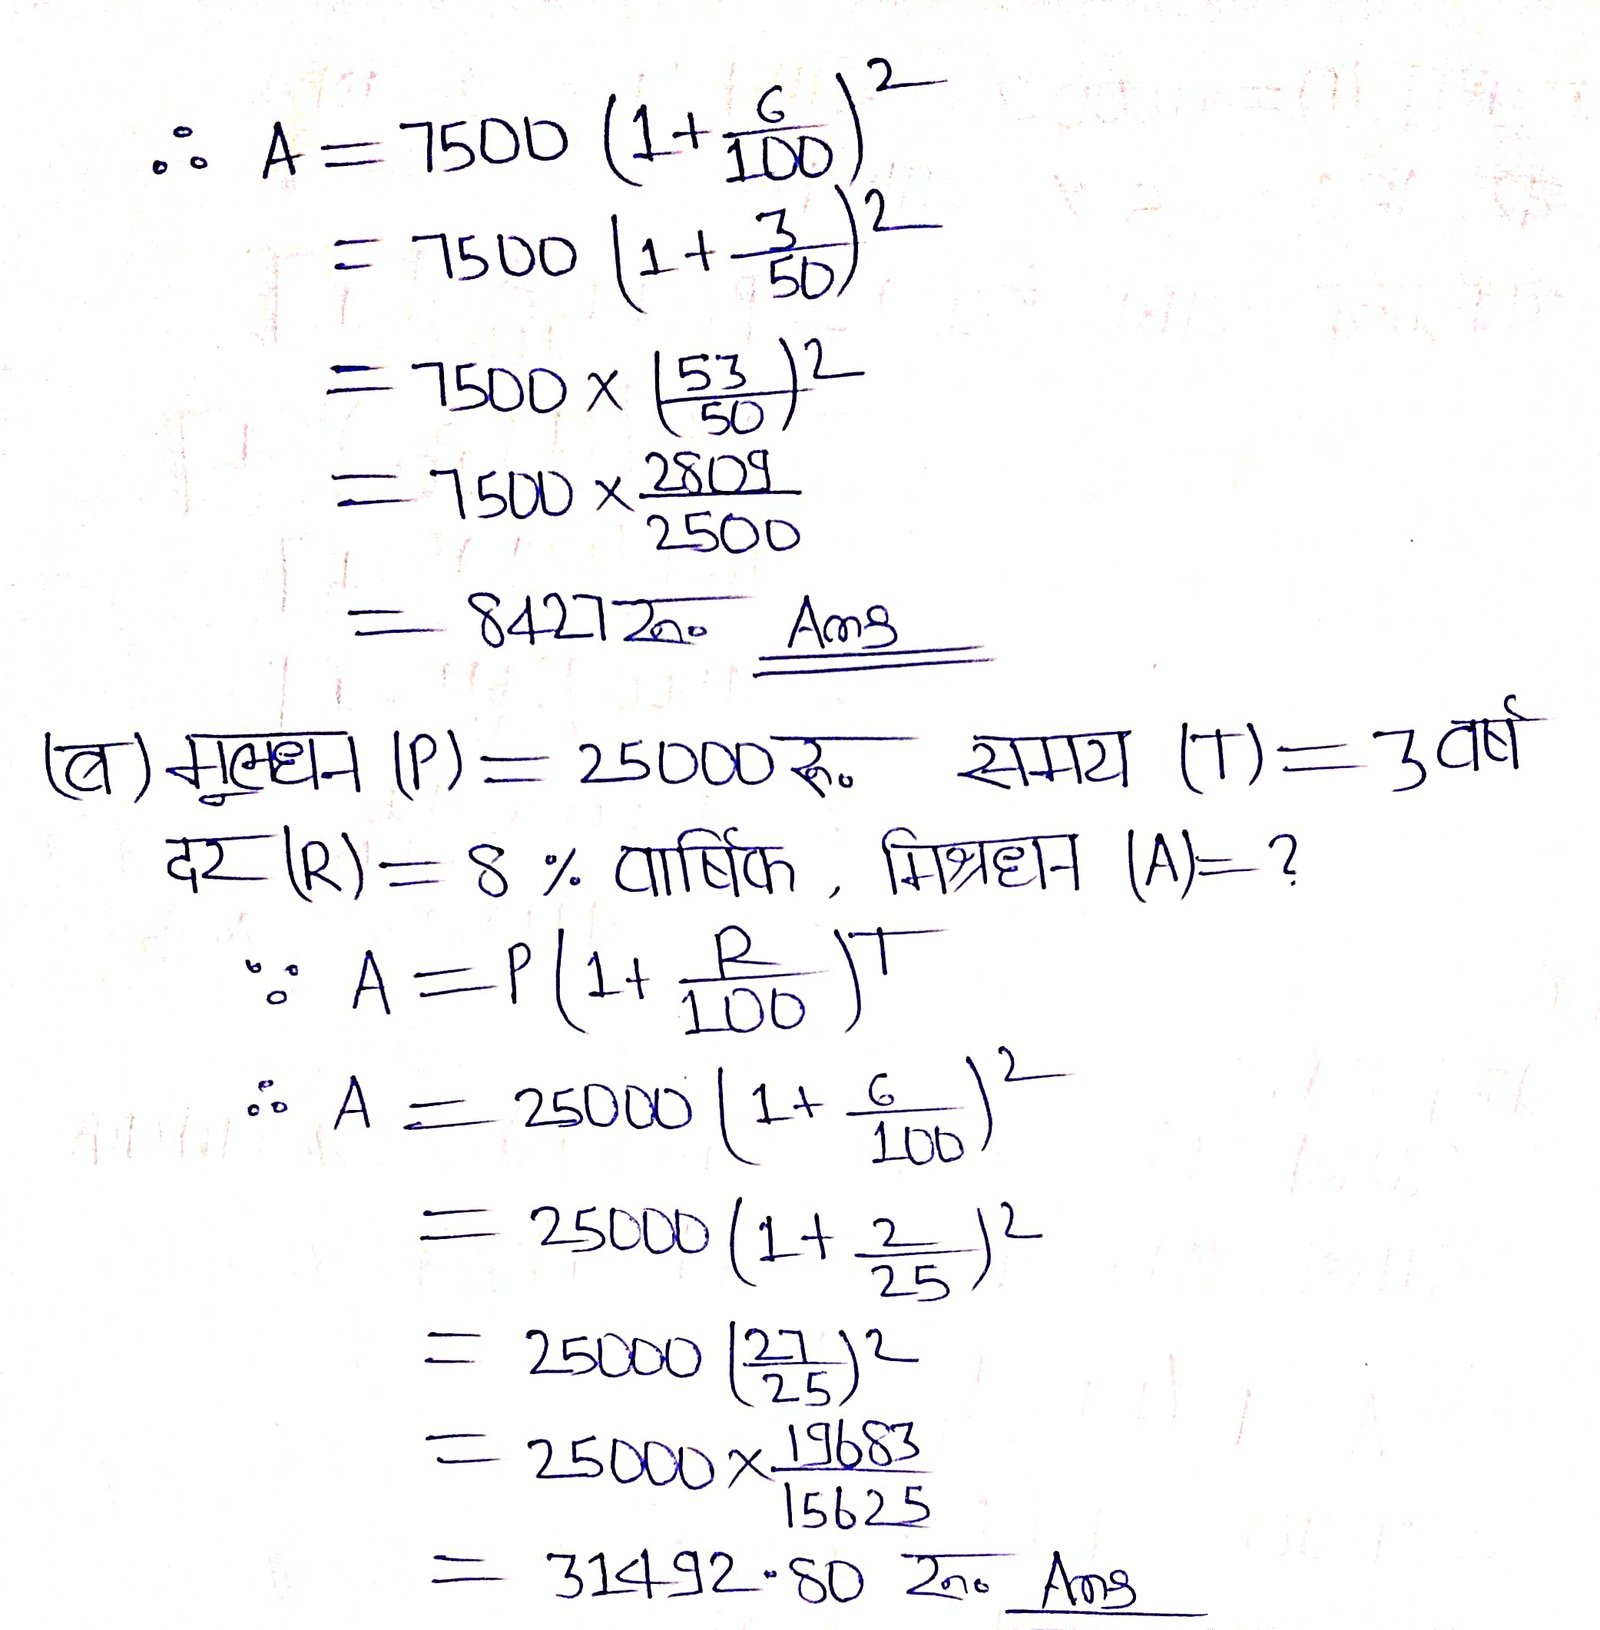 ∴ A = 7500 (1+ 6/100)²
= 7500 (1+ 3/50)²
= 7500 × (53/50)²
= 7500 × 2809/2500
= 8427 रू० Ans
(ब) मूलधन (P) = 25000 रू० समय (T) = 3 वर्ष
दर (R) = 8 % वार्षिक , मिश्रधन (A)= ?
∵ A = P(1+ R/100)ᵀ
∴ A = 25000 (1+ 6/100)²
= 25000 (1+ 2/25)²
= 25000 (27/25)²
= 25000 × 19683/15625
= 31492.80 रू० Ans